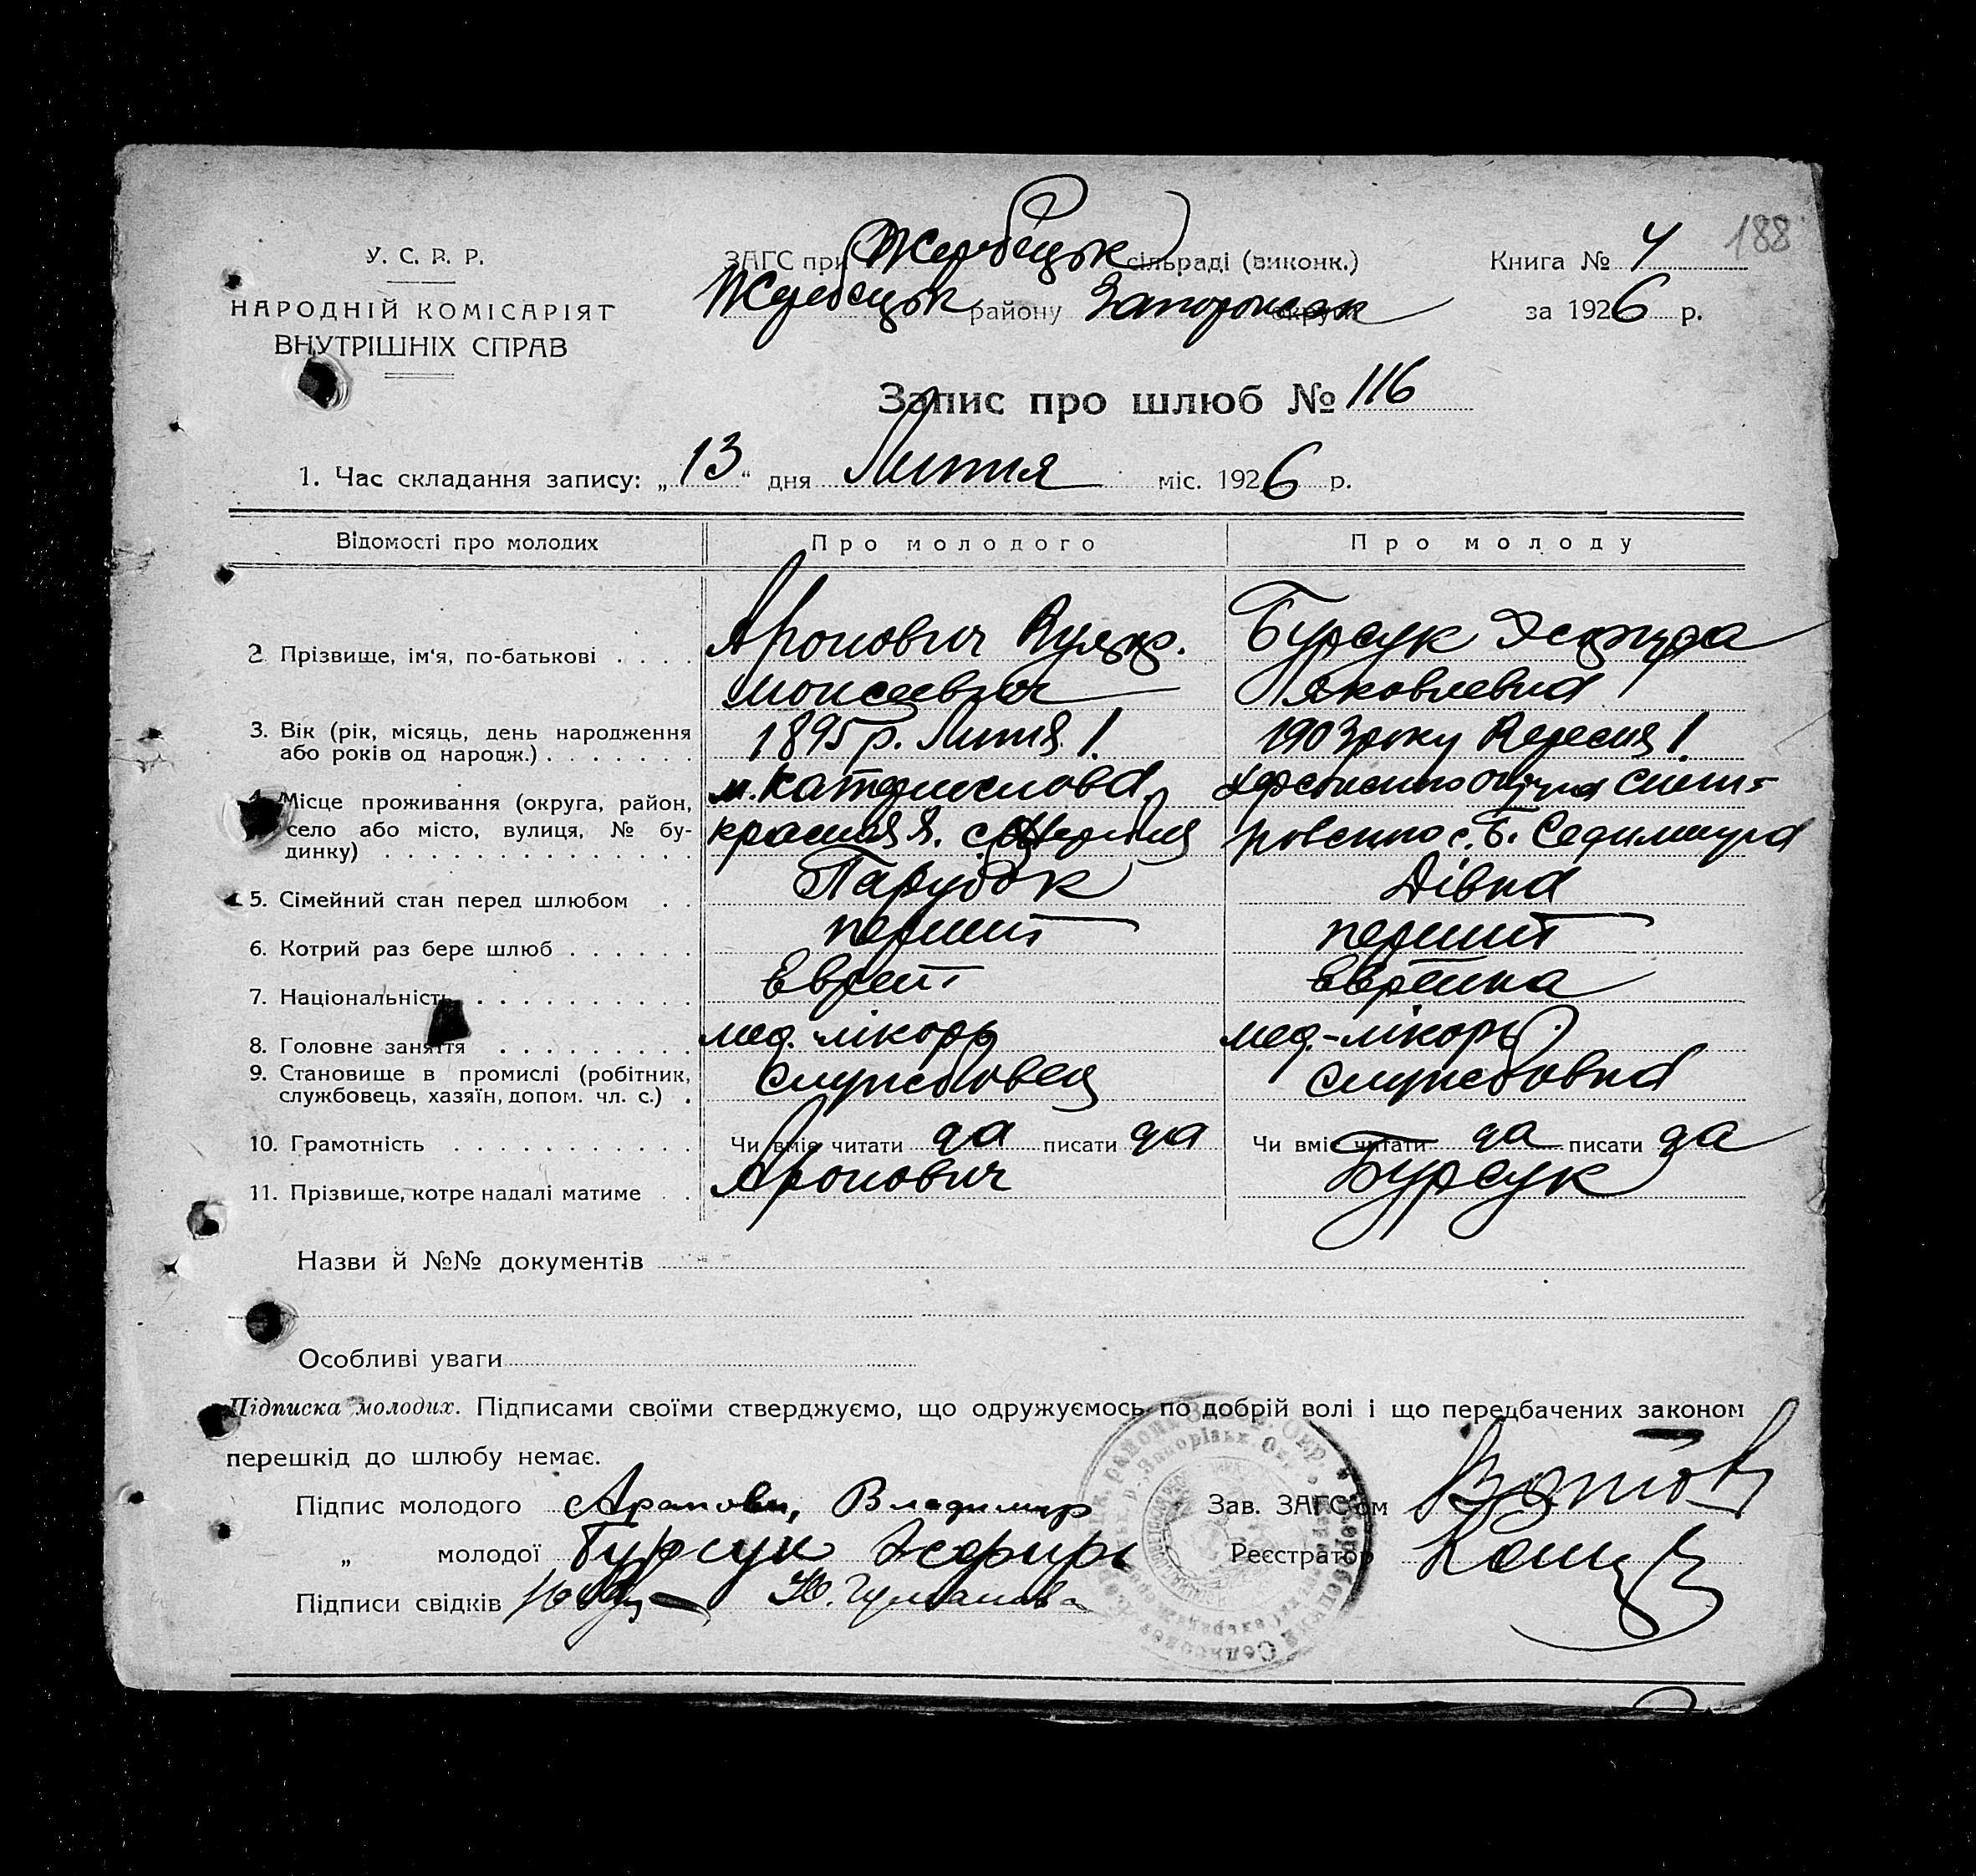 188
У. С. Р. Р.
НАРОДНІЙ КОМІСАРІЯТ
ВНУТРІШНІХ СПРАВ
ЗАГС при Жеребецьк сільраді (виконк.)
Жеребецьк району округи
Книга № 4
за 1926 р.
Запис про шлюб № 116
1. Час складання запису: „13“ дня Липня міс. 1926 р.
Відомості про молодих
Про молодого
Про молоду
2. Прізвище, ім'я, по-батькові
Аронович
Моисеевич
Бурсук
Яковлевна
3. Вік (рік, місяць, день народження
або років од народж.)
1895 р. Липня 1.
1903 року Вересня 1.
4. Місце проживання (округа, район,
село або місто, вулиця, № бу-
динку)
5. Сімейний стан перед шлюбом
Парубок
Дівка
6. Котрий раз бере шлюб
перший
перший
7. Національність
Еврей
Еврейка
8. Головне заняття
мед. лікорь
мед.-лікорь
9. Становище в промислі (робітник,
службовець, хазяїн, допом. чл. с.)
службовец
службовка
10. Грамотність
Чи вміє читати да писати да
Чи вміє читати да писати да
11. Прізвище, котре надалі матиме
Аронович
Бурсук
Назви й №№ документів
Особливі уваги
Підписка молодих. Підписами своїми стверджуємо, що одружуємось по добрій волі і що передбачених законом
перешкід до шлюбу немає.
Підпис молодого Владимир
„ молодої Бурсук
Підписи свідків
Зав. ЗАГС'ом
Реєстратор